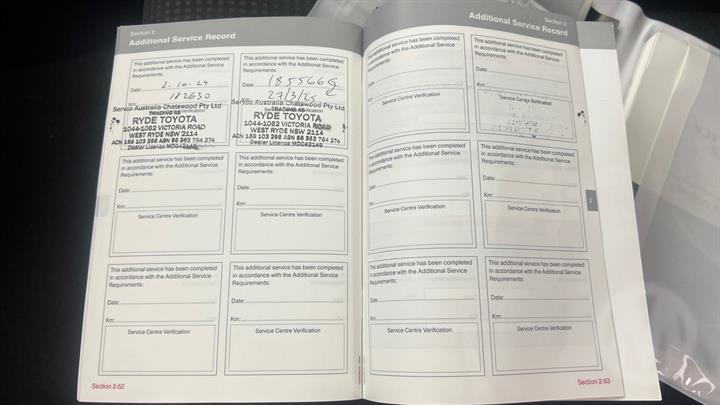 Section 2
Additional Service Record
This additional service has been completed
in accordance with the Additional Service
Requirements:
Date: 2.10.24
Km: 182630
Servco Australia Chatswood Pty Ltd
TRADING AS
RYDE TOYOTA
1044-1062 VICTORIA ROAD
WEST RYDE NSW 2114
ACN 189 103 298 ABN 86 363 764 274
Dealer License MD042149
This additional service has been completed
in accordance with the Additional Service
Requirements:
Date: 185566
Km: 27/3/25
Servco Australia Chatswood Pty Ltd
TRADING AS
RYDE TOYOTA
1044-1062 VICTORIA ROAD
WEST RYDE NSW 2114
Dealer License MD042149
This additional service has been completed
in accordance with the Additional Service
Requirements:
Date:
Km:
Service Centre Verification
This additional service has been completed
in accordance with the Additional Service
Requirements:
Date:
Km:
Service Centre Verification
This additional service has been completed
in accordance with the Additional Service
Requirements:
Date:
Km:
Service Centre Verification
This additional service has been completed
in accordance with the Additional Service
Requirements:
Date:
Km:
Service Centre Verification
Section 2-52
Section 2
Additional Service Record
This additional service has been completed
in accordance with the Additional Service
Requirements:
Date:
Km:
Service Centre Verification
This additional service has been completed
in accordance with the Additional Service
Requirements:
Date:
Km:
Service Centre Verification
This additional service has been completed
in accordance with the Additional Service
Requirements:
Date:
Km:
Service Centre Verification
This additional service has been completed
in accordance with the Additional Service
Requirements:
Date:
Km:
Service Centre Verification
2
This additional service has been completed
in accordance with the Additional Service
Requirements:
Date:
Km:
Service Centre Verification
This additional service has been completed
in accordance with the Additional Service
Requirements:
Date:
Km:
Service Centre Verification
Section 2-53